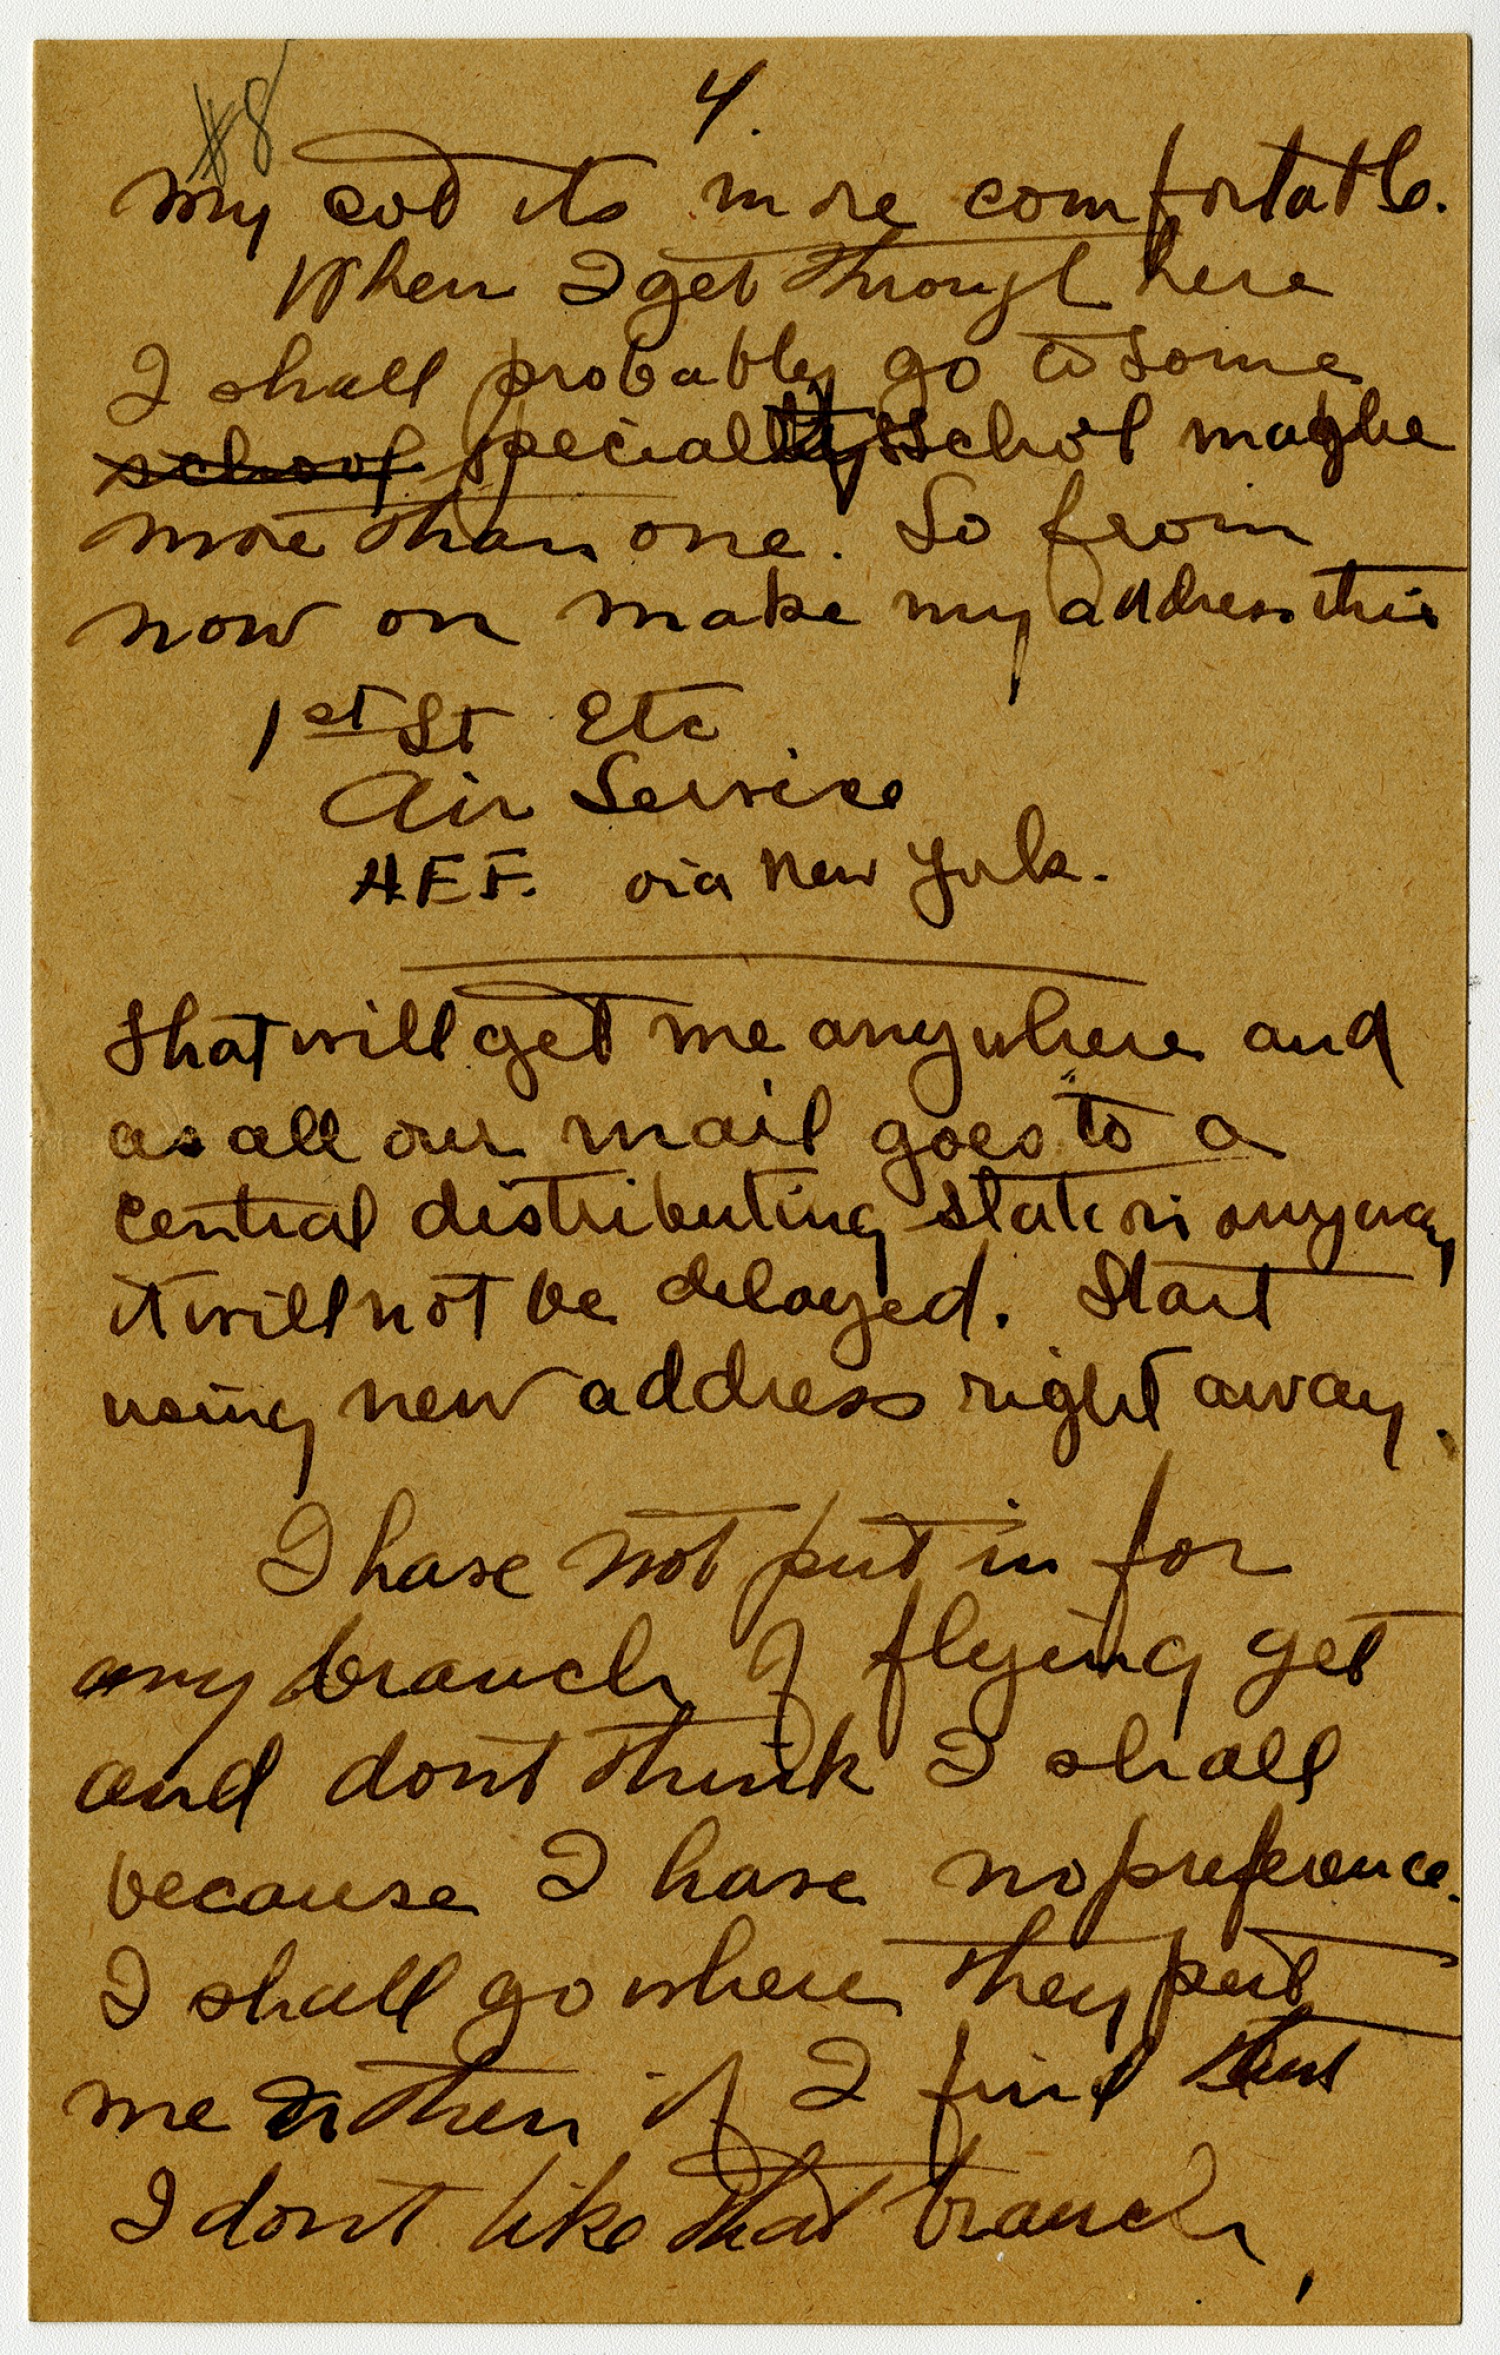 #8
4.
My cot its more comfortable.
When I get through here
I shall probably go to some
school specialty school maybe
more than one. So from
now on make my address this
1st Lt Etc
Air Service
A.E.F. via New York.
That will get me anywhere and
as all our mail goes to a
central distributing station anyway
it will not be delayed. Start
using new address right away.
I have not put in for
any branch of flying yet
and don't think I shall
because I have no preference.
I shall go where they put
me then if I find that
I don't like that branch,